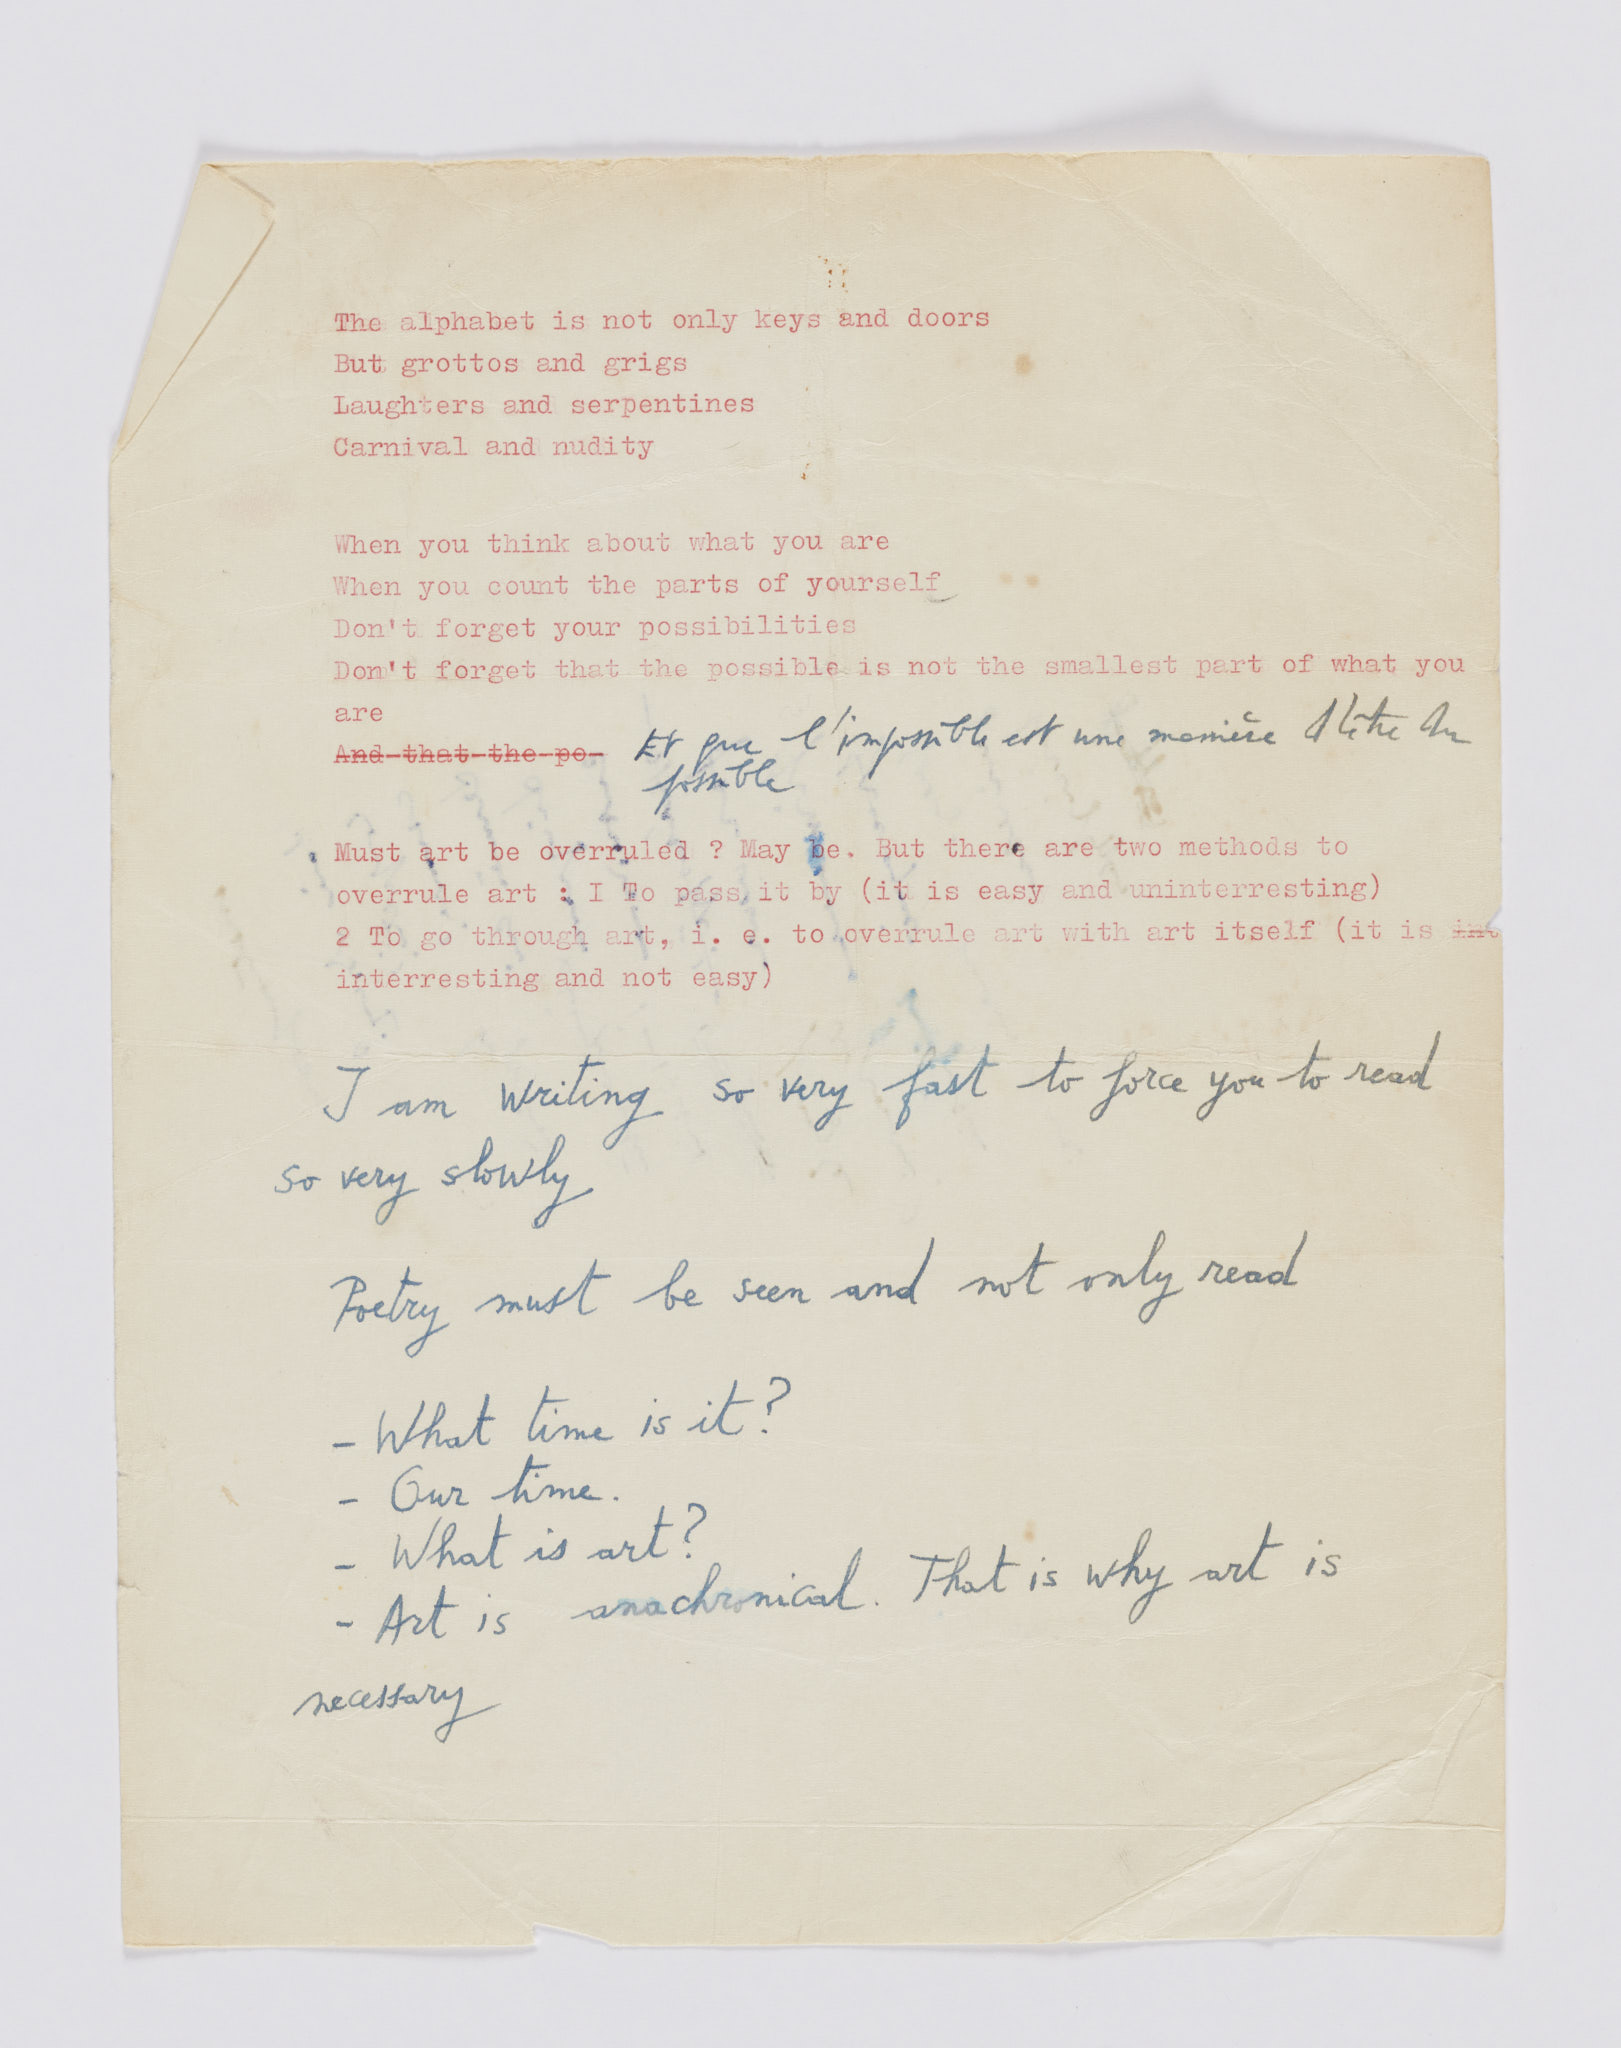 The alphabet is not only keys and doors
But grottos and grigs
Laughters and serpentines
Carnival and nudity
When you think about what you are
When you count the parts of yourself
Don't forget your possibilities
Don't forget that the possible is not the smallest part of what you
are
And that the po- Et que l'impossible est une manière d'être du
possible
Must art be overruled ? May be. But there are two methods to
overrule art : I To pass it by (it is easy and uninterresting)
2 To go through art, i. e. to overrule art with art itself (it is int
interresting and not easy)
I am writing so very fast to force you to read
so very slowly
Poetry must be seen and not only read
- What time is it?
- Our time.
- What is art?
- Art is anachronical. That is why art is
necessary